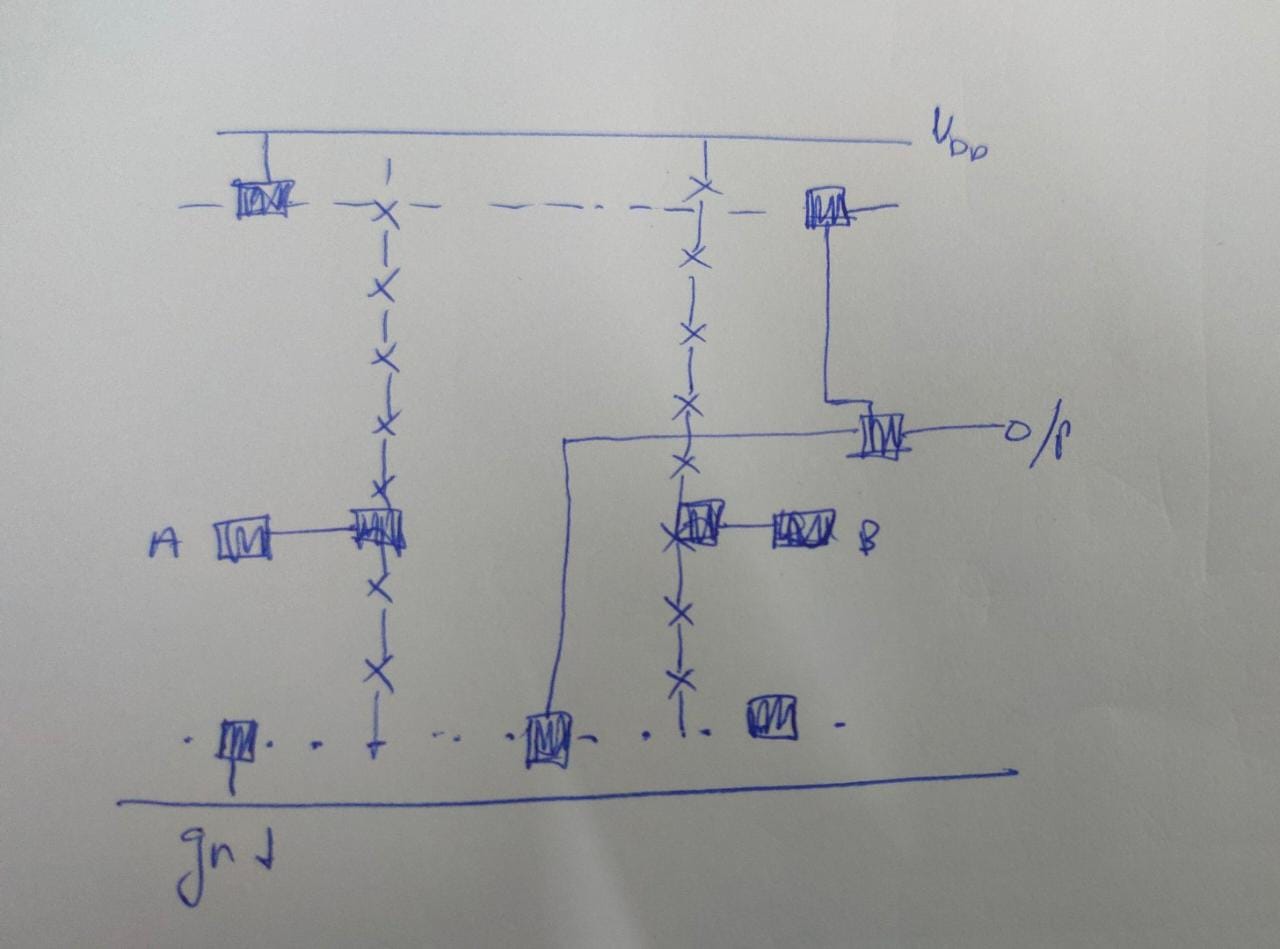 V_DD
O/P
A
B
gnd